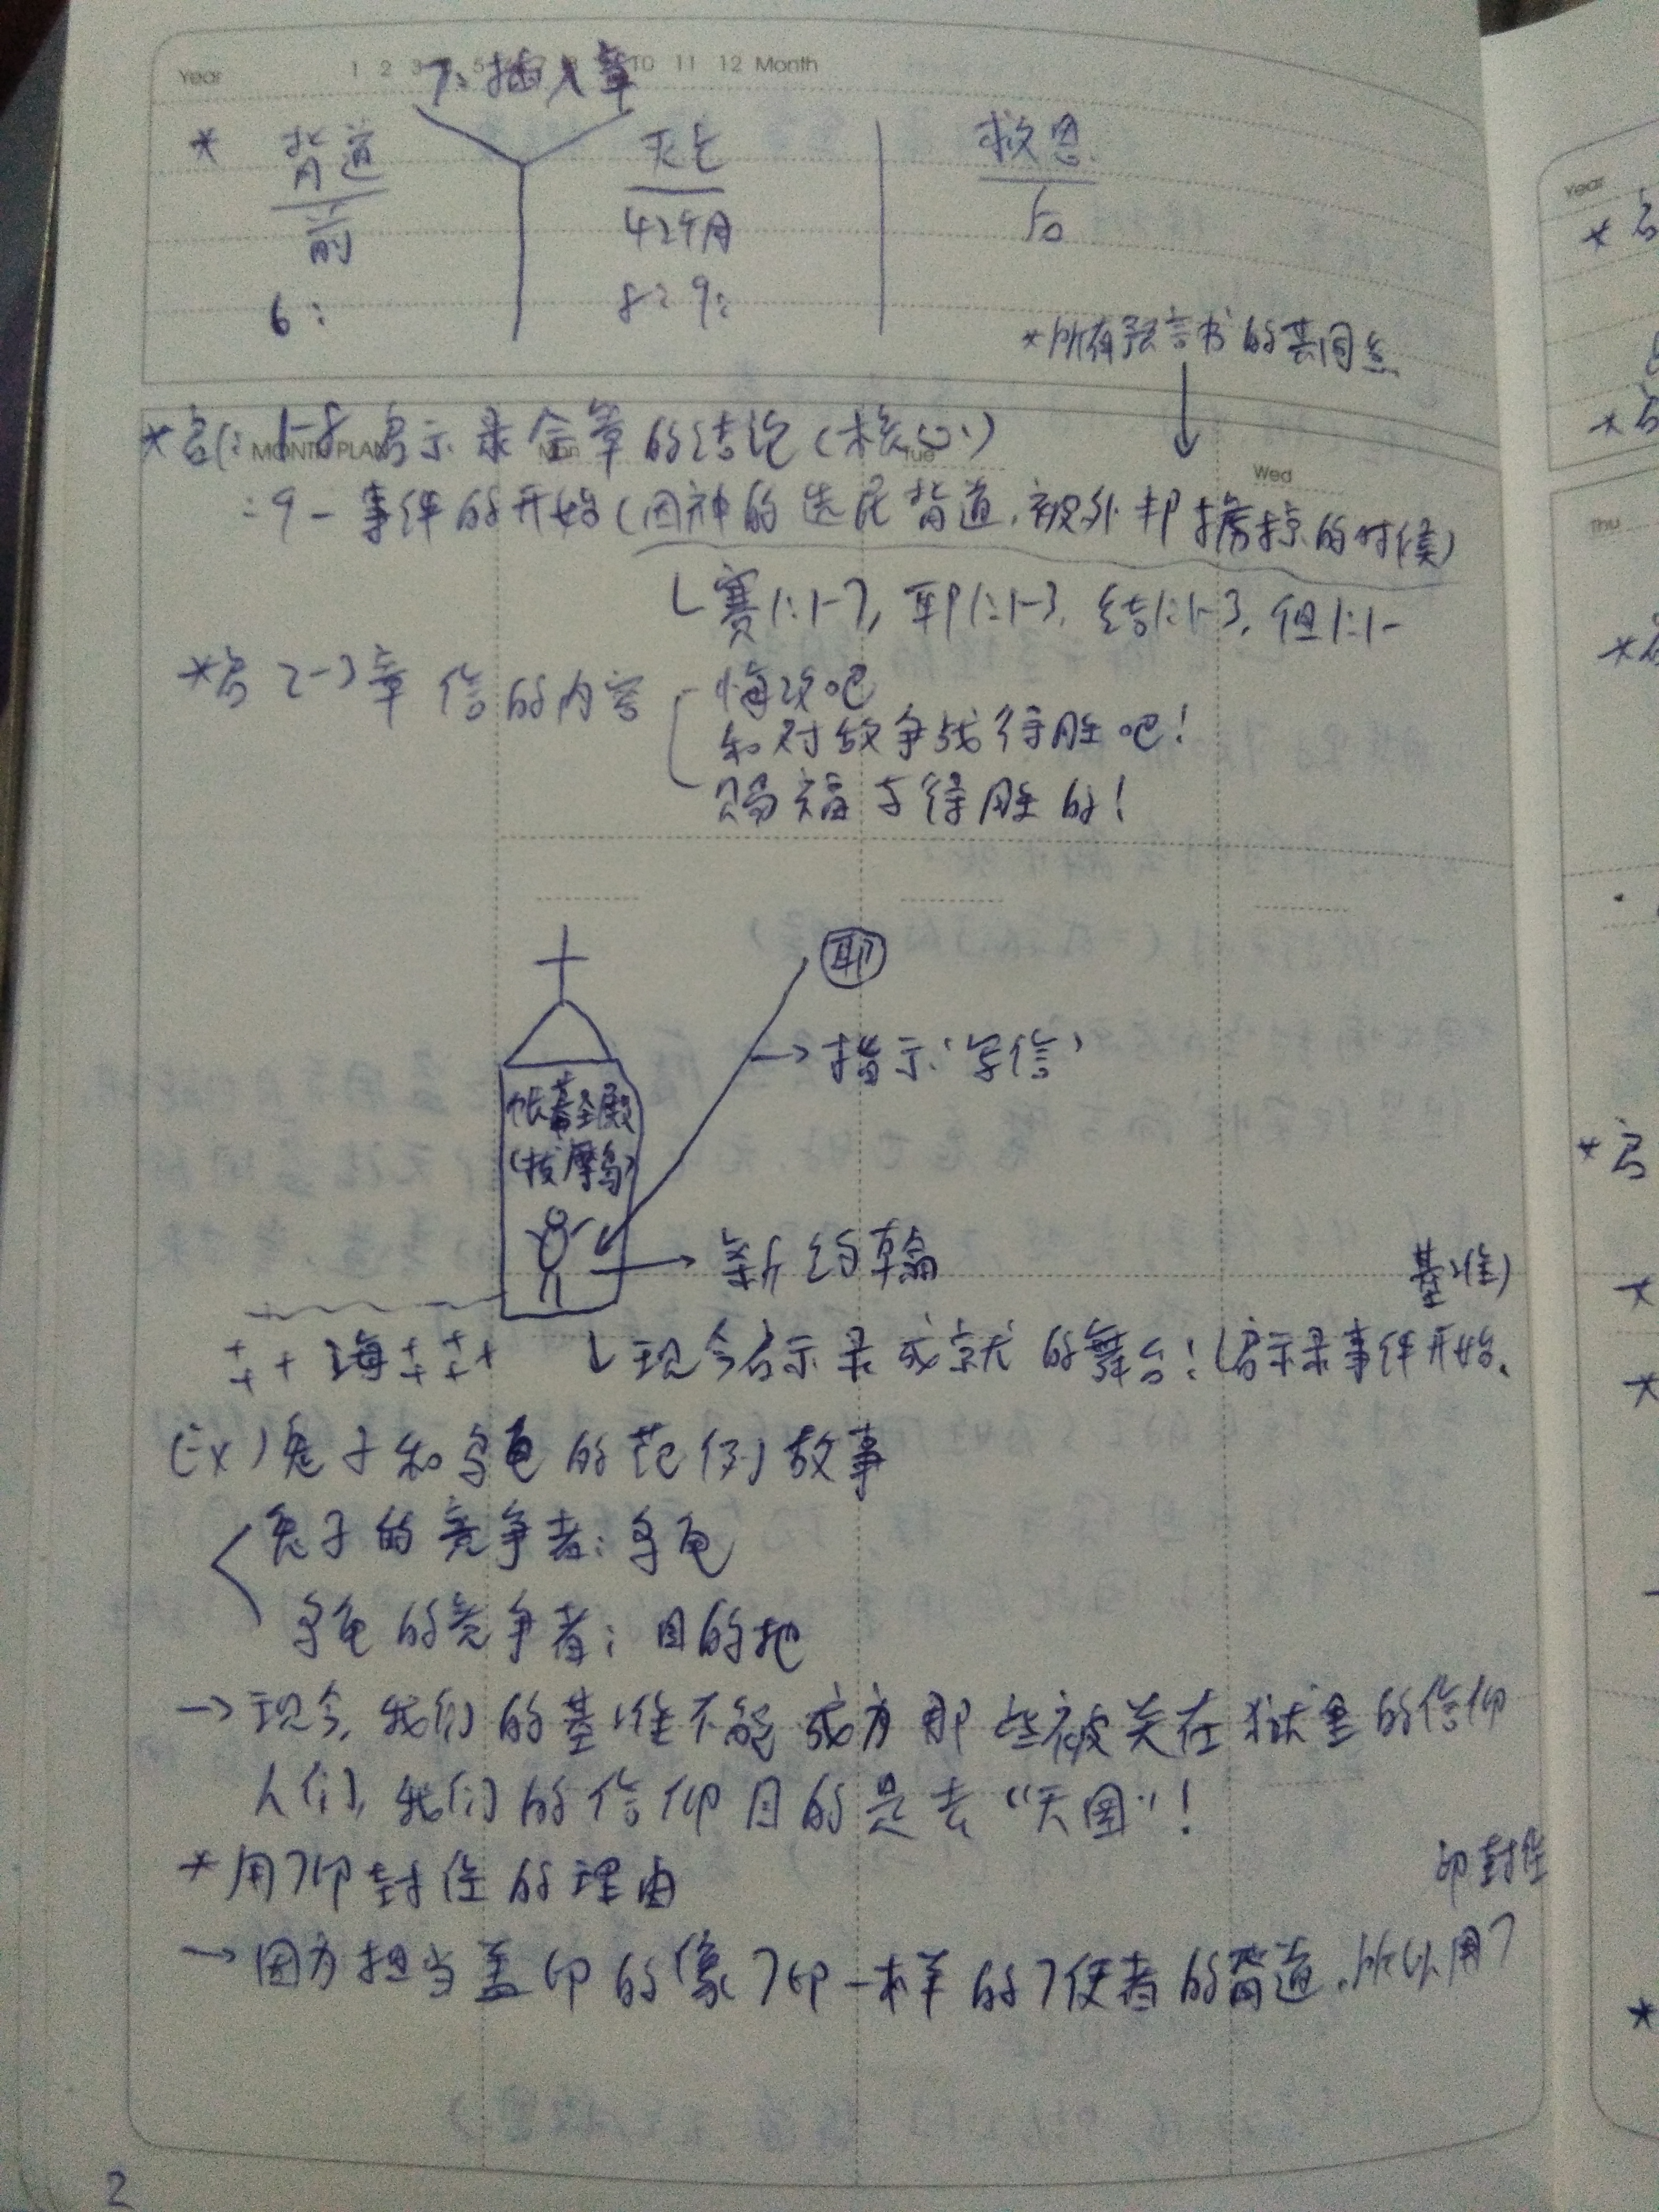 Year 1 2 3 5 10 11 12 Month
7: 插入章
* 背道 灭亡 救恩
前 42个月 后
6: 8: 9:
*所有预言书的共同点
MONTH PLAN Mon Tue Wed
*启1: 1-8 启示录全章的结论(核心)
:9- 事件的开始(因神的选民背道,被外邦掳掠的时候)
赛1:1-7, 耶1:1-3, 结1:1-3, 但1:1-
*启2-3章 信的内容
悔改吧
和对敌争战得胜吧!
赐福与得胜的!
耶
→指示‘写信’
帐幕圣殿
(拔摩岛)
→新约翰
基准)
海
现今启示录成就的舞台! 启示录事件开始.
Ex)兔子和乌龟的范例故事
兔子的竞争者: 乌龟
乌龟的竞争者: 目的地
→现今,我们的基准不能成为那些被关在狱里的信仰
人们,我们的信仰目的是去“天国”!
*用7印封住的理由
印封住
→因为担当盖印的像7印一样的7使者的背道,所以用7
2
Year
Thu
*启